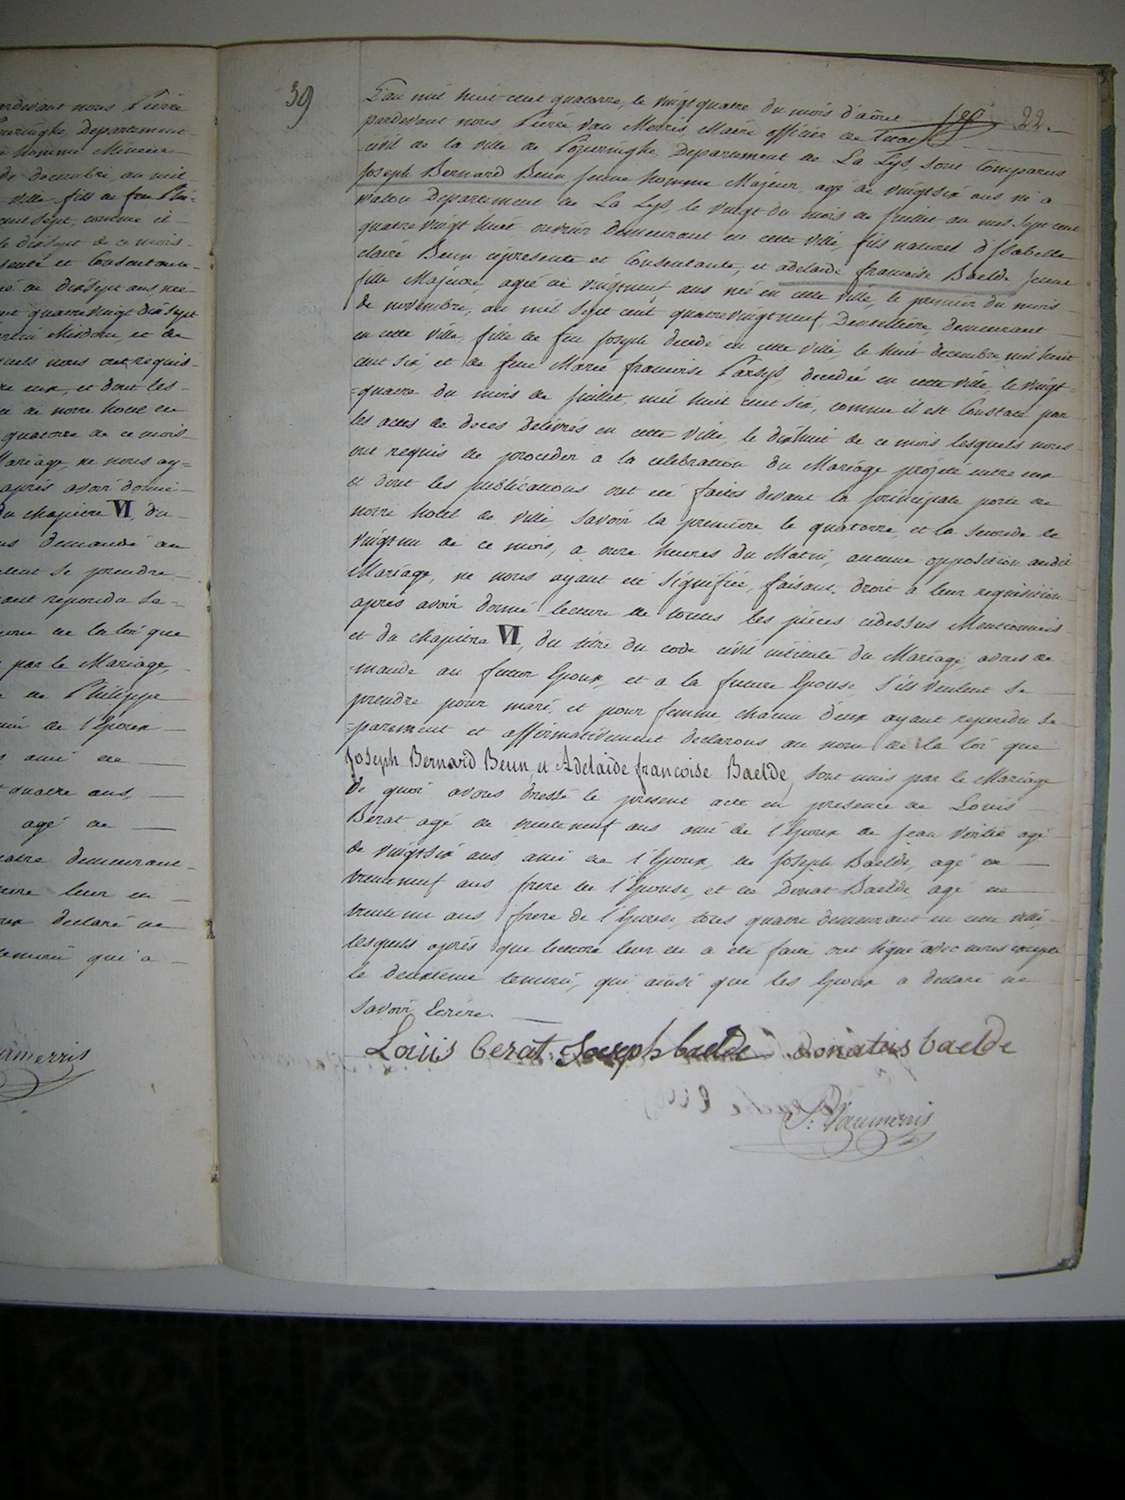 ardevant nous Pierre
Département
homme Mineur
de decembre au mil
ville fils de feu
comme il
le dixsept de ce mois
et Consentante
de dixsept ans nee
quatre vingt dixsept
et de
nous ont requis
eux, et dont les
de notre hotel de
quatorze de ce mois
Mariage, ne nous ay=
apres avoir donné
du chapitre VI, du
demandé au
se prendre
ayant repondu sé=
de la loi que
par le Mariage,
de Philippe
de l'Epoux
ami de
quatre ans,
agé de
quatre demeurant
leur en
declaré ne
qui a
Vanmerris
39
L'an mil huit cent quatorze, le vingt quatre du mois d'avril 22
pardevant nous Pierre Van Merris Maire officier de l'etat
civil de la ville de Poperinghe, Departement de La Lys, sont Comparus
Joseph Bernard Beun jeune homme Majeur, agé de vingtsix ans né a
Departement de La Lys, le vingt du mois de juillet au mil sept cent
quatre vingt huit ouvrier demeurant en cette ville, fils naturel d'Isabelle
claire Beun cipresente et Consentante, et adelaide francoise Baelde jeune
fille Majeure agée de vingt ans née en cette ville, le premier du mois
de novembre, au mil sept cent quatrevingt neuf, Dentellière, demeurant
en cette ville, fille de feu Joseph decedé en cette ville le huit decembre mil huit
cent six, et de feue Marie francoise Parsys, decedée en cette ville, le vingt-
=quatre du mois de juillet, mil huit cent six, comme il est Constaté par
les actes de deces delivrés en cette ville, le dixhuit de ce mois, lesquels nous
ont requis de proceder a la celebration du Mariage projeté entre eux
et dont les publications ont été faites devant la principale porte de
notre hotel de ville, savoir la premiere le quatorze, et la seconde le
vingtun de ce mois, à onze heures du Matin, aucune opposition audit
Mariage, ne nous ayant été signifiée, faisant droit a leur requisition
apres avoir donné lecture de toutes les pieces cidessus Mentionnées
et du chapitre VI, du titre du code civil intitulé du Mariage, avons de
=mandé au futur Epoux, et a la future Epouse, s'ils veulent se
prendre pour mari et pour femme chacun d'eux ayant repondu se
=parement et affirmativement declarons au nom de la loi que
Joseph Bernard Beun, et Adelaide francoise Baelde, sont unis par le Mariage
de quoi avons dressé le present acte en presence de Louis
Berat agé de trenteneuf ans ami de l'Epoux de Jean agé
de vingtsix ans ami de l'Epoux, de Joseph Baelde, agé de
trenteneuf ans frere de l'Epouse, et de Donat Baelde, agé de
ans, frere de l'Epouse, tous quatre demeurant en cette ville,
lesquels après que lecture leur en a été faite ont signé avec nous excepté
le deuxieme temoin, qui ainsi que les Epoux a declaré ne
savoir Ecrire.
Louis berat Joseph baelde donatus baelde
P: Vanmerris